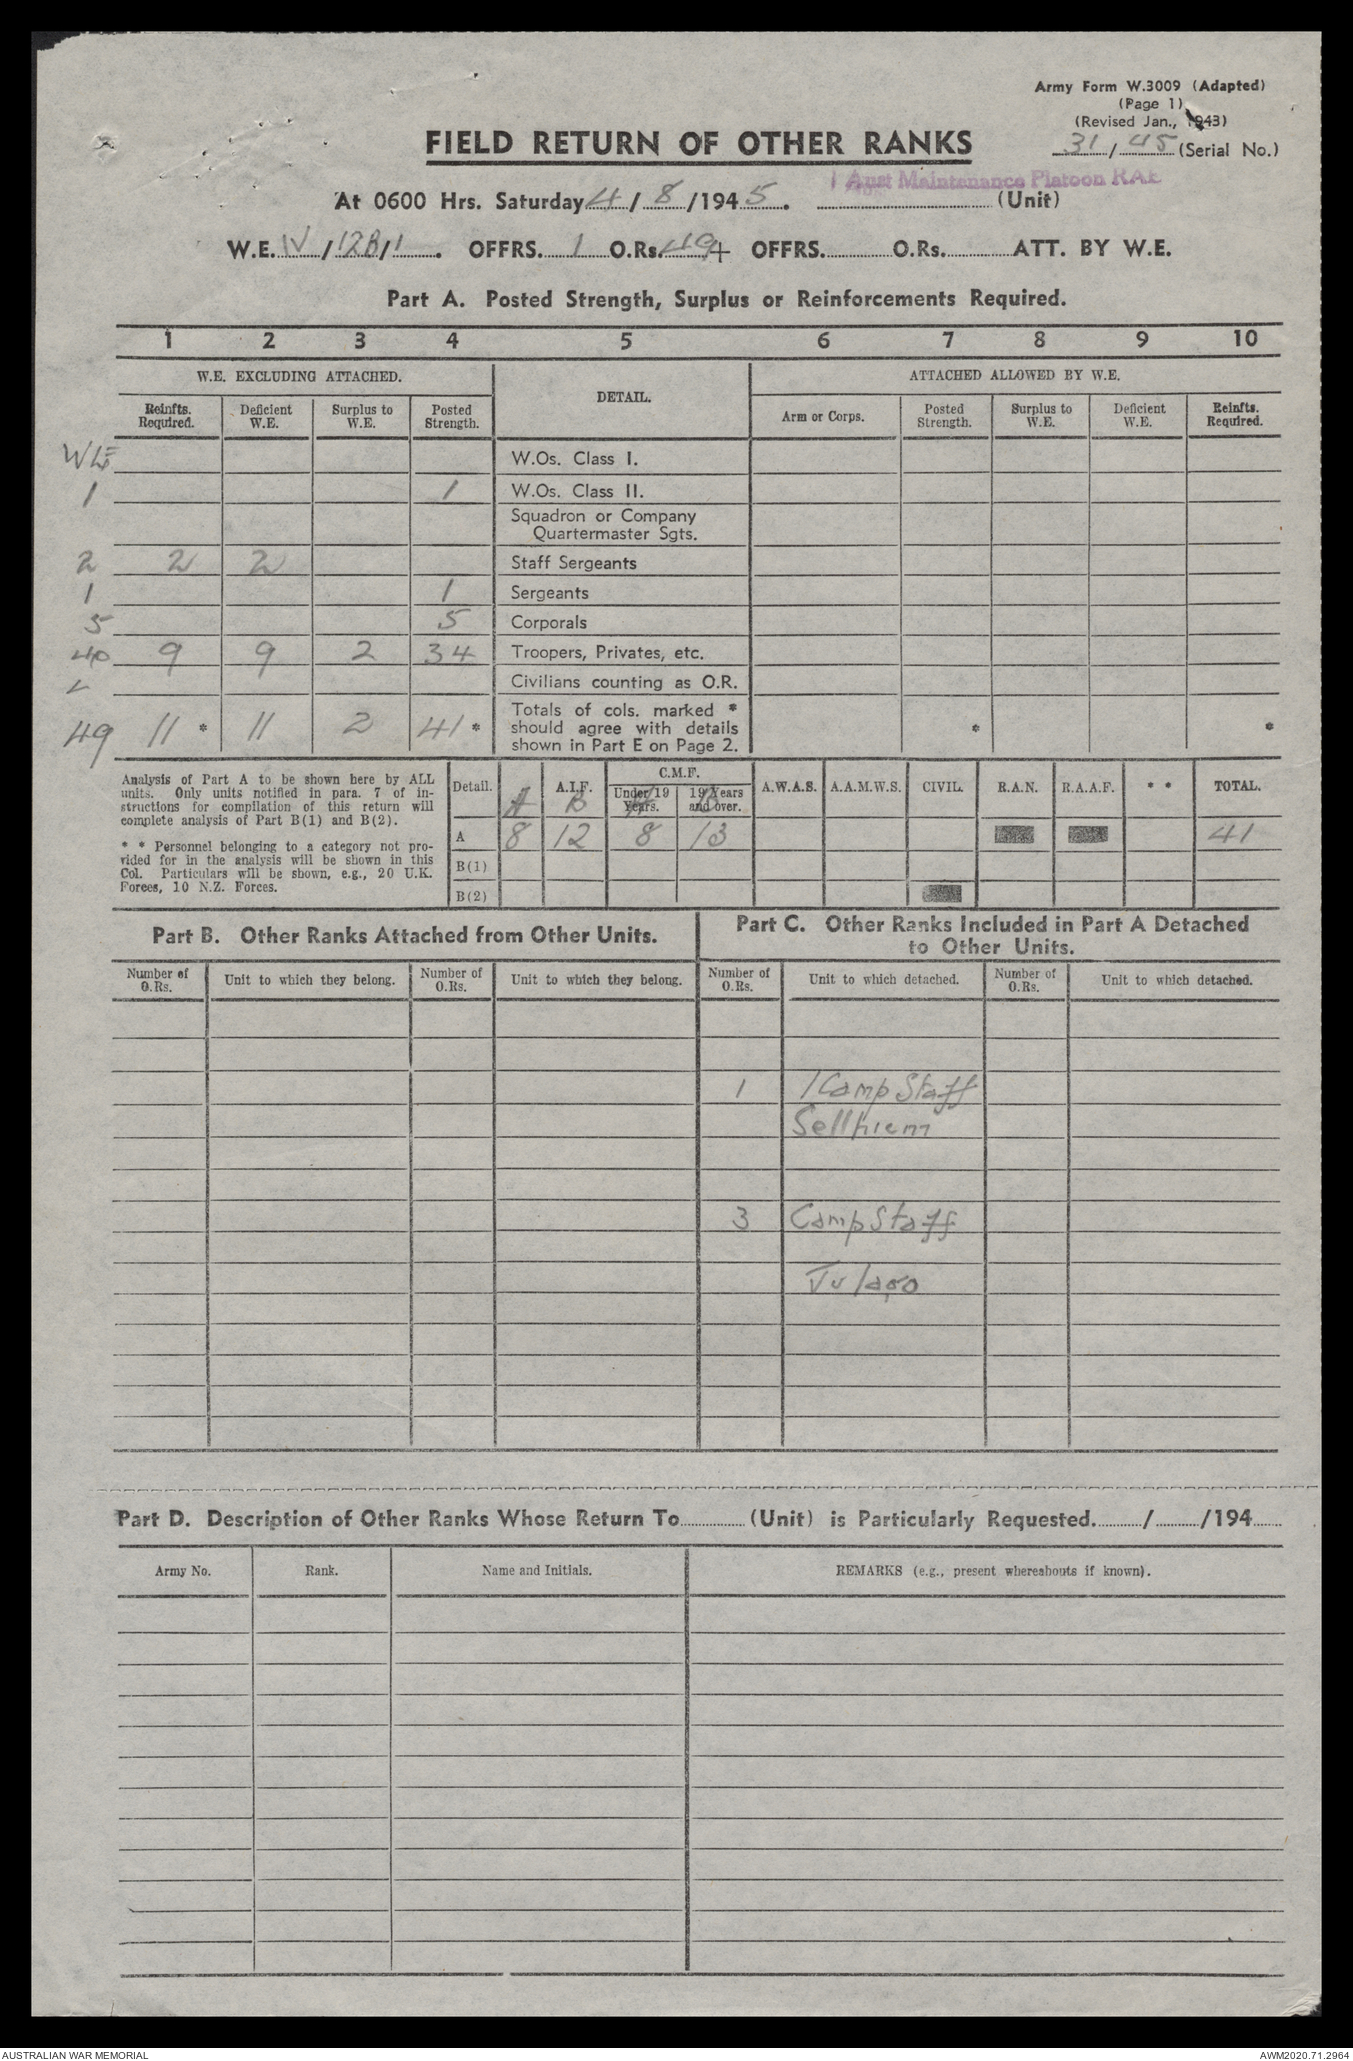 Army Form W.3009 (Adapted)
(Page 1)
(Revised Jan., 1943)
FIELD RETURN OF OTHER RANKS
31 / 45 (Serial No.)
1 Aust Maintenance Platoon RAE
At 0600 Hrs. Saturday 4 / 8 /1945. (Unit)
W.E. IV / 12B / 1. OFFRS. 1 O.Rs. 49 + OFFRS. O.Rs. ATT. BY W.E.
Part A. Posted Strength, Surplus or Reinforcements Required.
1 2 3 4 5 6 7 8 9 10
W.E. EXCLUDING ATTACHED. DETAIL. ATTACHED ALLOWED BY W.E.
Reinfts. Required. Deficient W.E. Surplus to W.E. Posted Strength. Arm or Corps. Posted Strength. Surplus to W.E. Deficient W.E. Reinfts. Required.
W.Os. Class I.
1 1 W.Os. Class II.
Squadron or Company
Quartermaster Sgts.
2 2 2 Staff Sergeants
1 1 Sergeants
5 5 Corporals
40 9 9 2 34 Troopers, Privates, etc.
Civilians counting as O.R.
Totals of cols. marked *
49 11 * 11 2 41 * should agree with details * *
shown in Part E on Page 2.
Analysis of Part A to be shown here by ALL
units. Only units notified in para. 7 of in-
structions for compilation of this return will
complete analysis of Part B(1) and B(2).
* * Personnel belonging to a category not pro-
vided for in the analysis will be shown in this
Col. Particulars will be shown, e.g., 20 U.K.
Forces, 10 N.Z. Forces.
C.M.F.
Detail. A.I.F. Under 19 Years. 19 Years and over. A.W.A.S. A.A.M.W.S. CIVIL. R.A.N. R.A.A.F. * * TOTAL.
A B A B
A 8 12 8 13 41
B(1)
B(2)
Part B. Other Ranks Attached from Other Units.
Part C. Other Ranks Included in Part A Detached
to Other Units.
Number of O.Rs. Unit to which they belong. Number of O.Rs. Unit to which they belong. Number of O.Rs. Unit to which detached. Number of O.Rs. Unit to which detached.
1 1 Camp Staff
Sellhiem
3 Camp Staff
Part D. Description of Other Ranks Whose Return To (Unit) is Particularly Requested. / /194
Army No. Rank. Name and Initials. REMARKS (e.g., present whereabouts if known).
AUSTRALIAN WAR MEMORIAL AWM2020.71.2964